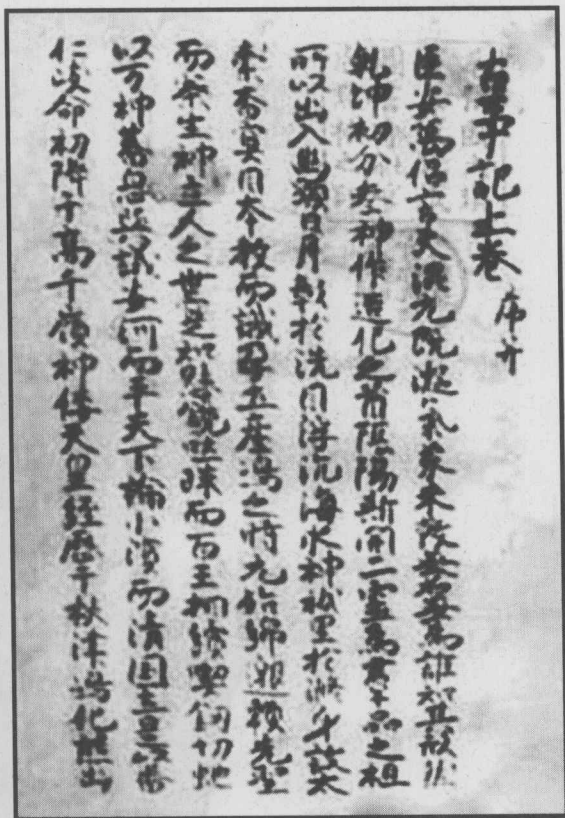 古事記上巻 序并
臣安萬侶言夫混元既凝氣象未效無名無為誰知其形然
乾坤初分参神作造化之首陰陽斯開二霊為群品之祖
所以出入幽顕日月彰於洗目浮沉海水神祇呈於滌身故太
素杳冥因本教而識孕土産嶋之時元始綿邈頼先聖
而察生神立人之世寔知懸鏡吐珠而百王相續喫釼切虵
以万神蕃息與議安河而平天下論小濱而清国土是以番
仁岐命初降于高千嶺神倭天皇經歷于秋津嶋化熊出